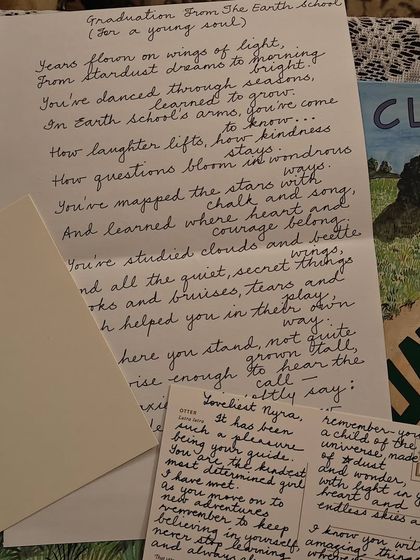 Graduation From The Earth School
(For a young soul)
Years flown on wings of light,
From stardust dreams to morning
bright.
You've danced through seasons,
learned to grow.
In Earth School's arms, you've come
to know...
How laughter lifts, how kindness
stays.
How questions bloom in wondrous
ways.
You've mapped the stars with
chalk and song,
And learned where heart and
courage belong.
You've studied clouds and beetle
wings,
nd all the quiet, secret things
oks and bruises, tears and
play,
h helped you in their own
way.
here you stand, not quite
grown tall,
ise enough to hear the
call —
ntly say:
CL
OTTER
Lutra lutra
Loveliest Nyra,
It has been
such a pleasure
being your guide.
You are the kindest
most determined girl
I have met.
As you move on to
new adventures
remember to keep
believing in yourself,
never stop learning
and always
remember you
a child of the
universe, made
of dust
and wonder,
with light in
heart and
endless skies
I know you w
amazing thin